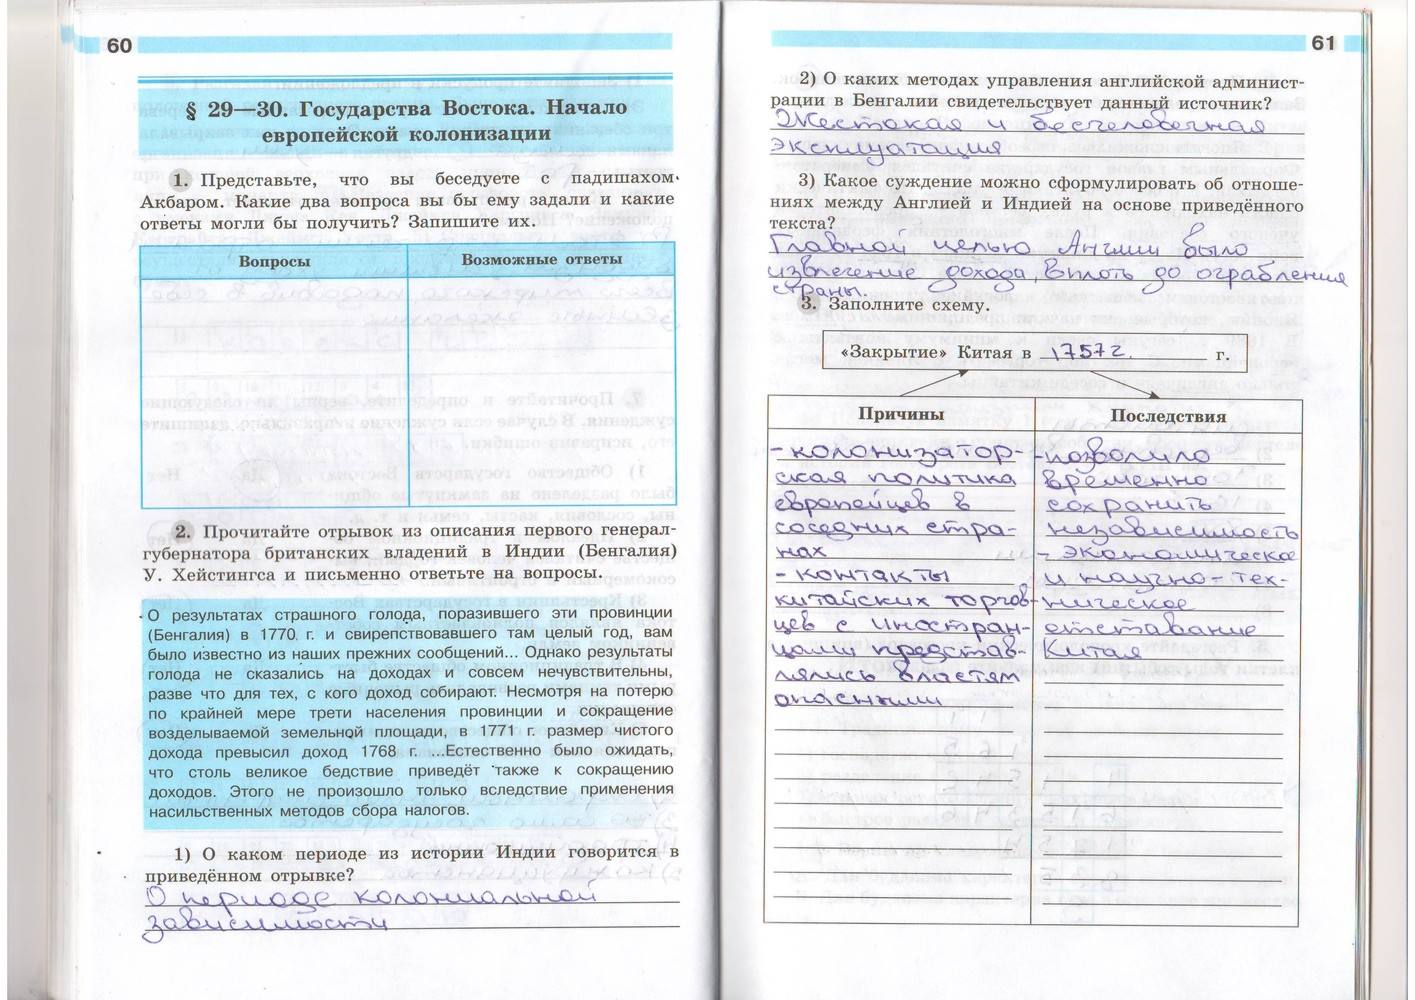 60
§ 29—30. Государства Востока. Начало
европейской колонизации
1. Представьте, что вы беседуете с падишахом
Акбаром. Какие два вопроса вы бы ему задали и какие
ответы могли бы получить? Запишите их.
Вопросы
Возможные ответы
2. Прочитайте отрывок из описания первого генерал-
губернатора британских владений в Индии (Бенгалия)
У. Хейстингса и письменно ответьте на вопросы.
О результатах страшного голода, поразившего эти провинции
(Бенгалия) в 1770 г. и свирепствовавшего там целый год, вам
было известно из наших прежних сообщений... Однако результаты
голода не сказались на доходах и совсем нечувствительны,
разве что для тех, с кого доход собирают. Несмотря на потерю
по крайней мере трети населения провинции и сокращение
возделываемой земельной площади, в 1771 г. размер чистого
дохода превысил доход 1768 г. ...Естественно было ожидать,
что столь великое бедствие приведёт также к сокращению
доходов. Этого не произошло только вследствие применения
насильственных методов сбора налогов.
1) О каком периоде из истории Индии говорится в
приведённом отрывке?
О периоде колониальной
зависимости
61
2) О каких методах управления английской админист-
рации в Бенгалии свидетельствует данный источник?
Жестокая и бесчеловечная
эксплуатация
3) Какое суждение можно сформулировать об отноше-
ниях между Англией и Индией на основе приведённого
текста?
Главной целью Англии было
извлечение дохода, вплоть до ограбления
страны.
3. Заполните схему.
«Закрытие» Китая в 1757г. г.
Причины
- колонизатор-
ская политика
европейцев в
соседних стра-
нах
- контакты
китайских торгов-
цев с иностран-
цами представ-
лялись властям
опасными
Последствия
- позволило
временно
сохранить
независимость
- экономическое
и научно-тех-
ническое
отставание
Китая